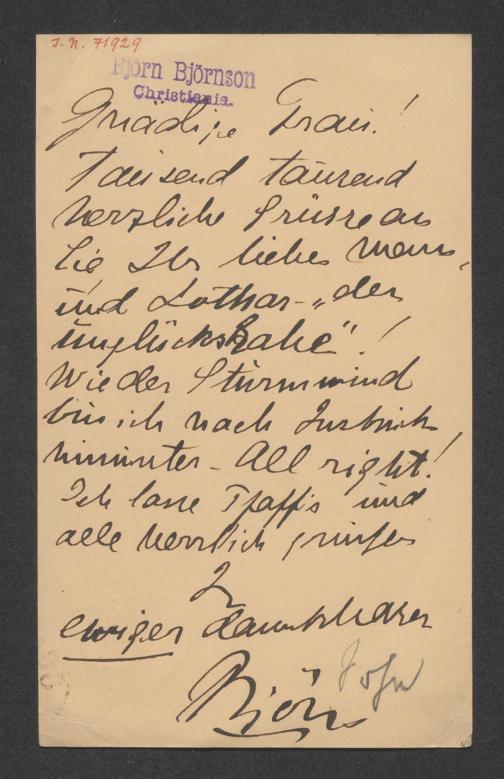 I. N. 71929
Björn Björnson
Christiania.
Gnädige Frau!
Tausend tausend
herzliche Grüsse an
Sie Ihr liebes Mann,
und Lothar - „der
unglücksrabe"!
Wie der Sturmwind
bin ich nach Insbruk
hinunter - All right!
Ich lasse Pfaffs und
alle herzlich grüssen
In
ewiger dankbarer
Björn